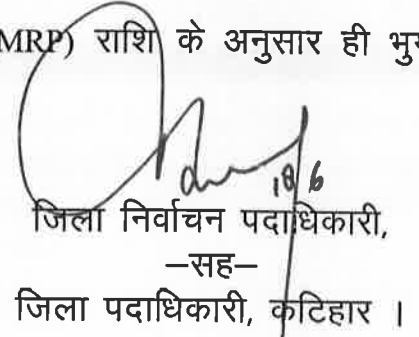 MRP) राशि के अनुसार ही
18/6
जिला निर्वाचन पदाधिकारी,
–सह–
जिला पदाधिकारी, कटिहार ।